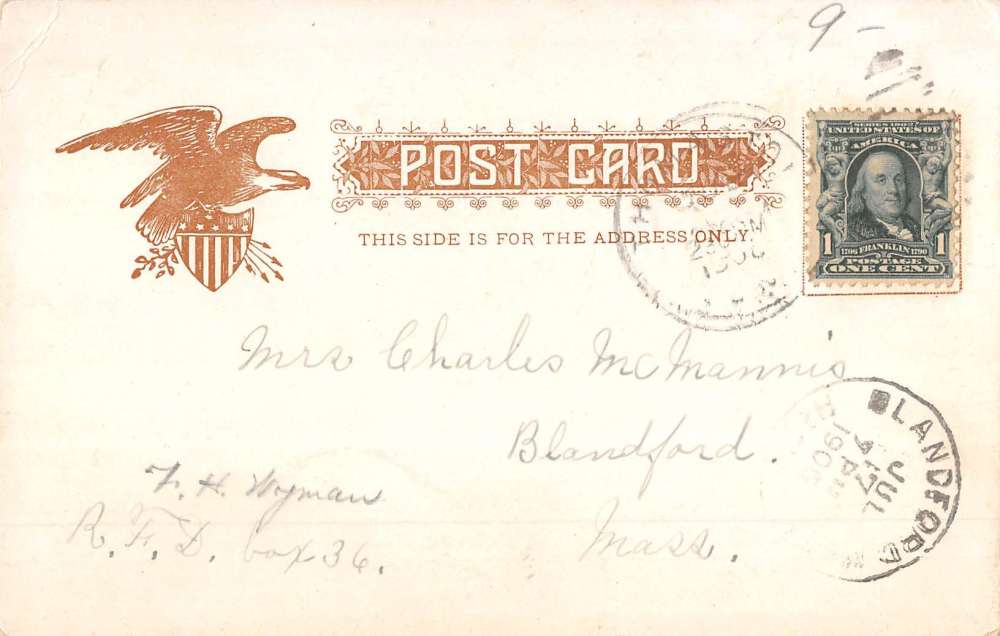 9-
POST CARD
THIS SIDE IS FOR THE ADDRESS ONLY.
SERIES 1902
UNITED STATES OF
AMERICA
1706 FRANKLIN 1790
1 POSTAGE 1
ONE CENT
Mrs Charles McMannis
Blandford.
Mass.
F. H. Wyman
R. F. D. box 36.
BLANDFORD
JUL